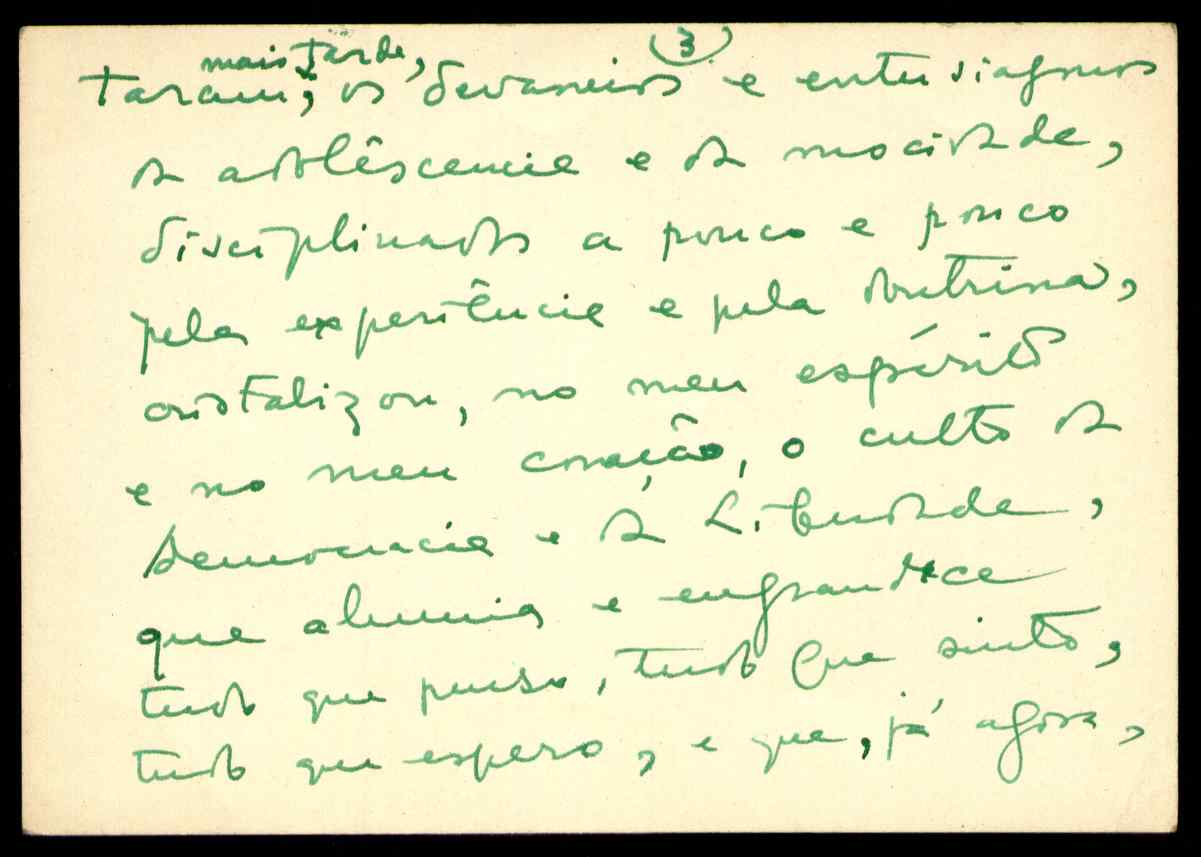 (3)
mais tarde,
taram, os devaneios e entusiasmos
da adolêscencia e da mocidade,
disciplinados a pouco e pouco
pela experiência e pela doutrina,
cristalizou, no meu espírito
e no meu coração, o culto da
Democracia e da Liberdade,
que alumia e engrandece
tudo que penso, tudo que sinto,
tudo que espero, e que, já agora,